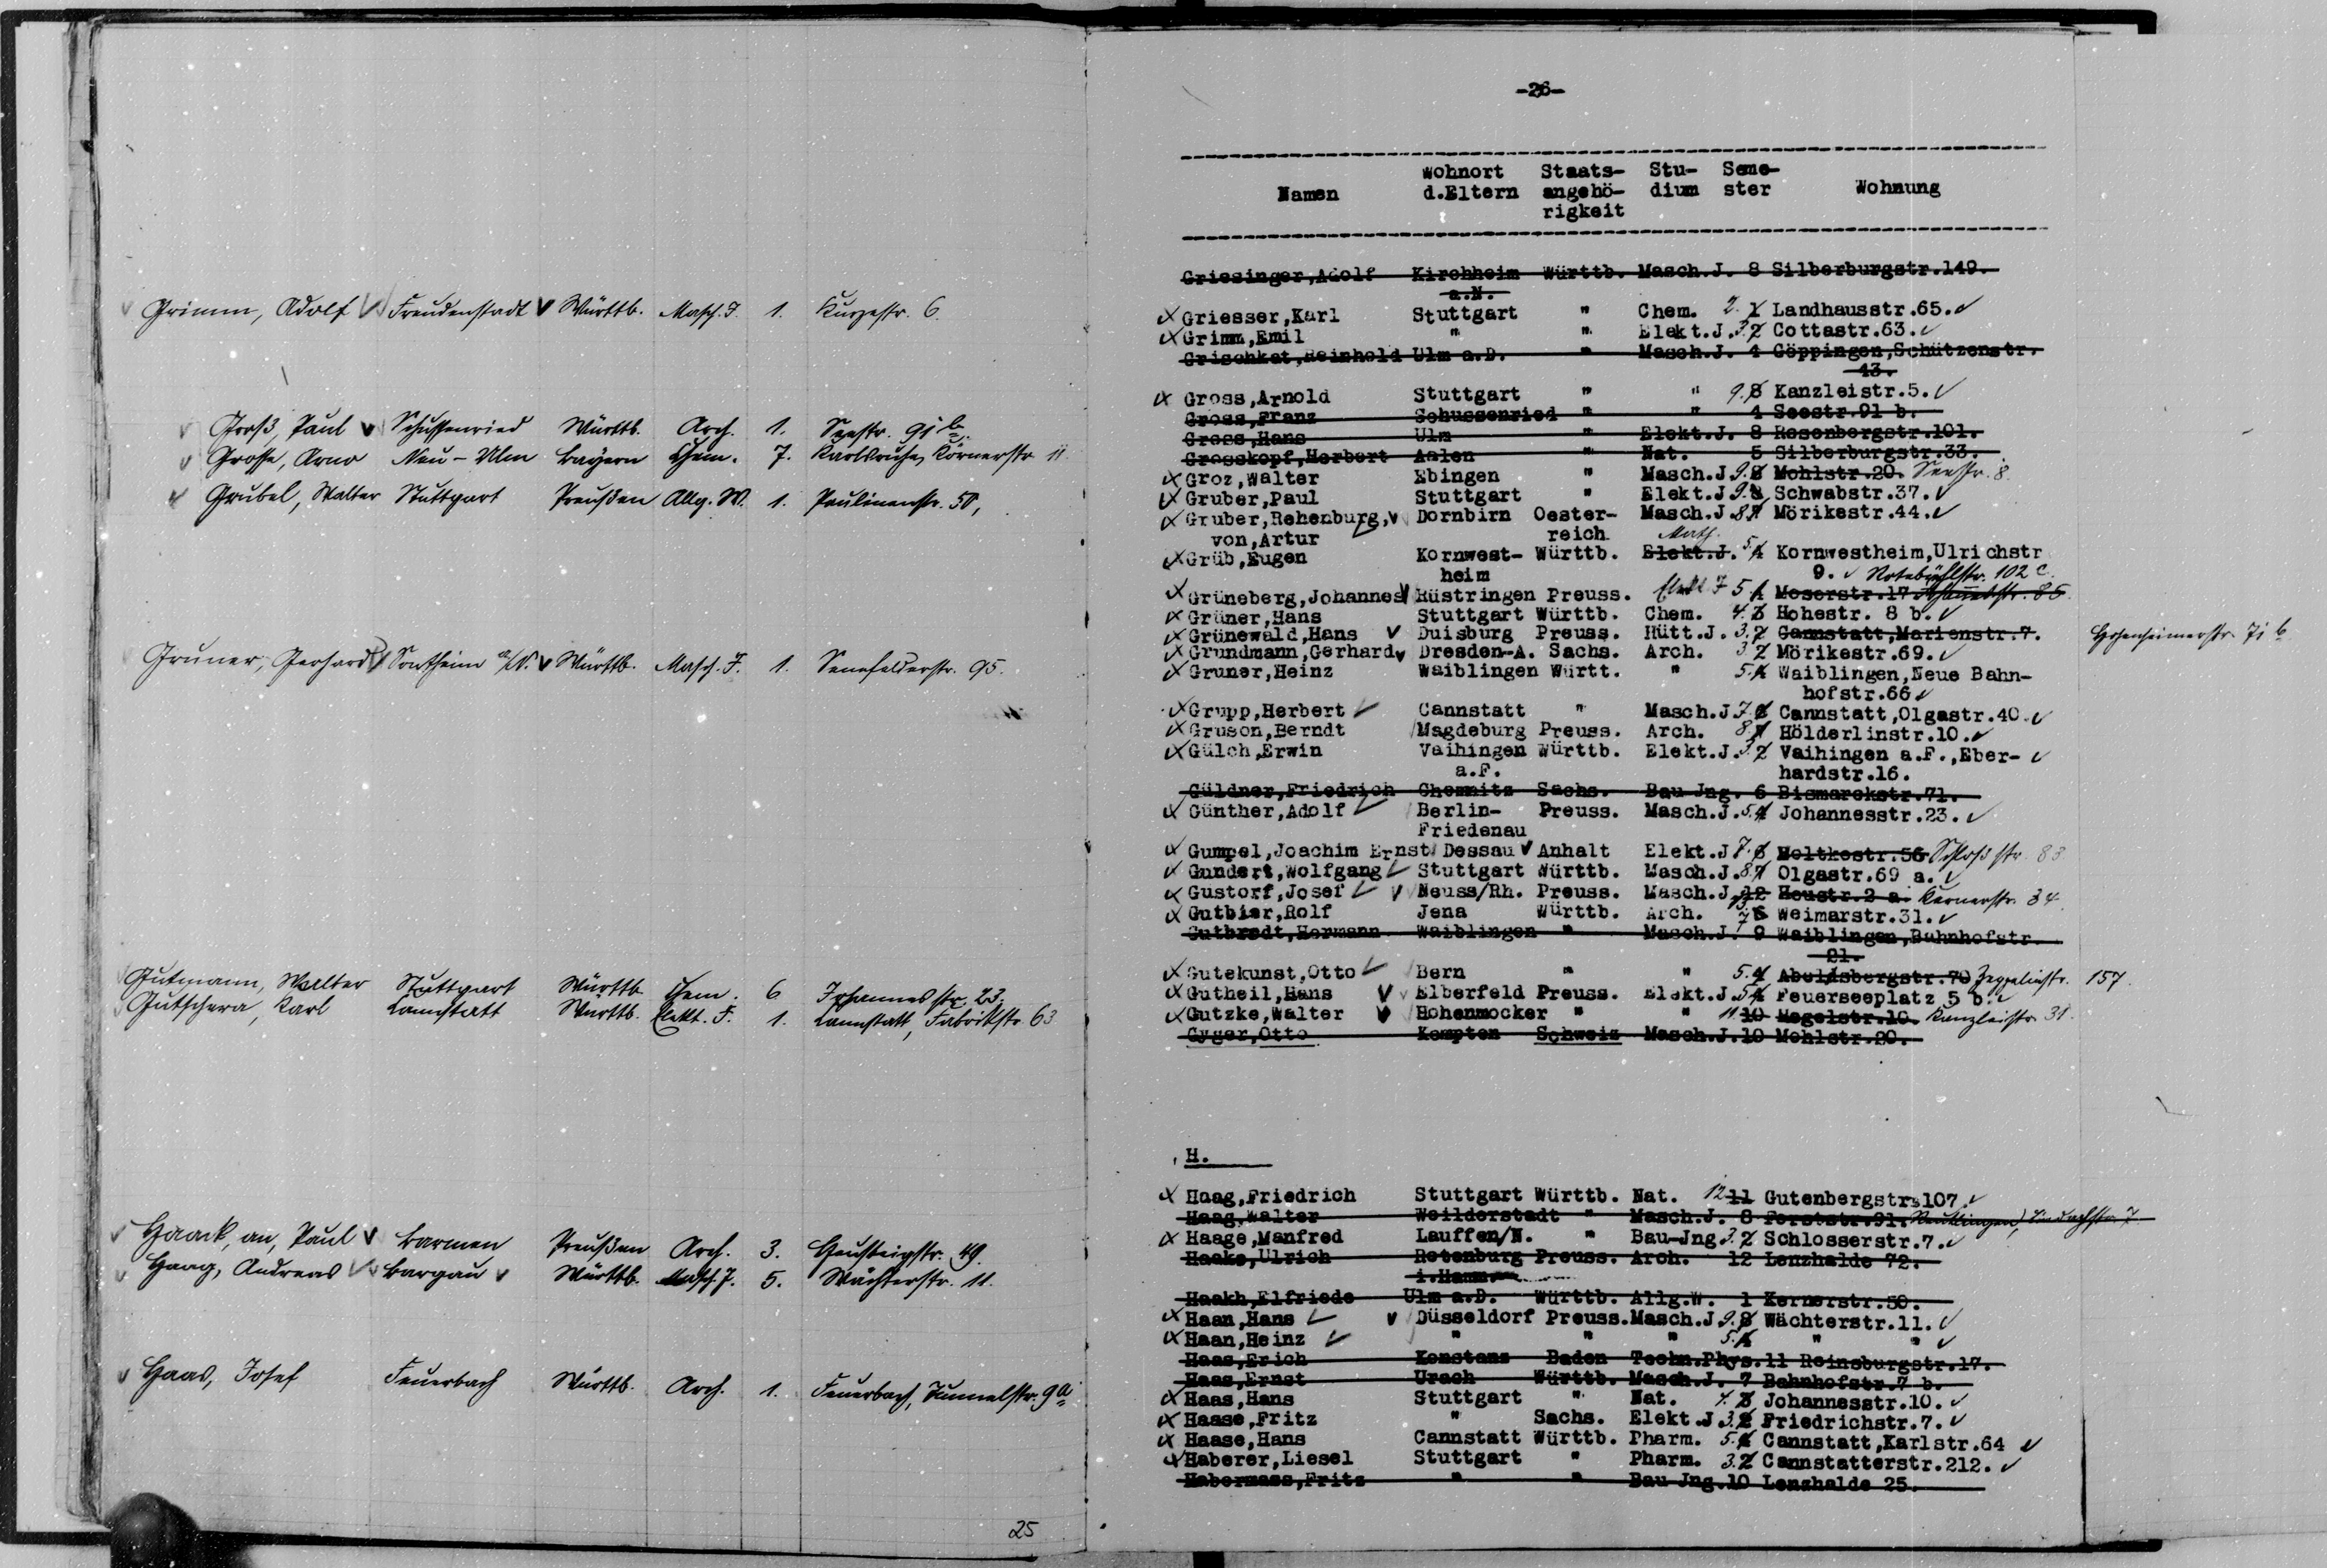 Grimm, Adolf Freudenstadt Württb. Masch. J. 1. Kurzestr. 6.
Groß, Paul Schussenried Württb. Arch. 1. Seestr. 91 b.
Grosse, Arno Neu-Ulm Bayern Chem. 7. Karlsruhe, Körnerstr. 11
Grubel, Walter Stuttgart Preußen Allg. W. 1. Paulinenstr. 50,
Gruner, Gerhard Sontheim a/N. Württb. Masch. J. 1. Senefelderstr. 95.
Gutmann, Walter Stuttgart Württb. Chem. 6 Johannesstr. 23.
Gutschera, Karl Cannstatt Württb. Elekt. J. 1. Cannstatt, Fabrikstr. 63
Haack, an, Paul Barmen Preußen Arch. 3. Geusteigstr. 49.
Haag, Andreas Bargau Württb. Masch. J. 5. Wächterstr. 11.
Haas, Josef Feuerbach Württb. Arch. 1. Feuerbach, Tunnelstr. 9a
25
-26-
Wohnort Staats- Stu- Seme-
Namen d.Eltern angehö- dium ster Wohnung
rigkeit
Griesinger,Adolf Kirchheim Württb. Masch.J. 8 Silberburgstr.149.
a.N.
Griesser,Karl Stuttgart " Chem. 2. 1 Landhausstr.65.
Grimm,Emil " " Elekt.J. 3. 2 Cottastr.63.
Grischkat,Reinhold Ulm a.D. " Masch.J. 4 Göppingen,Schützenstr.
43.
Gross,Arnold Stuttgart " " 9. 8 Kanzleistr.5.
Gross,Franz Schussenried " " 4 Seestr.91 b.
Gross,Hans Ulm " Elekt.J. 8 Rosenbergstr.101.
Grosskopf,Herbert Aalen " Nat. 5 Silberburgstr.33.
Groz,Walter Ebingen " Masch.J. 9. 8 Mohlstr.20. Seestr. 8.
Gruber,Paul Stuttgart " Elekt.J. 9. 8 Schwabstr.37.
Gruber,Rehenburg, Dornbirn Oester- Masch.J. 8. 7 Mörikestr.44.
von,Artur reich Math.
Grüb,Eugen Kornwest- Württb. Elekt.J. 5. 4 Kornwestheim,Ulrichstr
heim 9. Rotebühlstr. 102 c.
Grüneberg,Johannes Rüstringen Preuss. Elekt. J 5 4 Moserstr.17 86
Grüner,Hans Stuttgart Württb. Chem. 4. 3 Hohestr. 8 b.
Grünewald,Hans Duisburg Preuss. Hütt.J. 3. 2 Cannstatt,Marienstr.7. Hohenheimerstr. 71 b
Grundmann,Gerhard Dresden-A. Sachs. Arch. 3 2 Mörikestr.69.
Gruner,Heinz Waiblingen Württ. " 5. 4 Waiblingen,Neue Bahn-
hofstr.66
Grupp,Herbert Cannstatt " Masch.J. 7. 6 Cannstatt,Olgastr.40.
Gruson,Berndt Magdeburg Preuss. Arch. 8. 7 Hölderlinstr.10.
Gülch,Erwin Vaihingen Württb. Elekt.J. 3. 2 Vaihingen a.F.,Eber-
a.F. hardstr.16.
Güldner,Friedrich Chemnitz Sachs. Bau-Jng. 6 Bismarckstr.71.
Günther,Adolf Berlin- Preuss. Masch.J. 5. 4 Johannesstr.23.
Friedenau
Gumpel,Joachim Ernst Dessau Anhalt Elekt.J 7. 6 Moltkestr.56 Schloßstr. 83
Gundert,Wolfgang Stuttgart Württb. Masch.J. 8. 7 Olgastr.69 a.
Gustorf,Josef Neuss/Rh. Preuss. Masch.J. 12 Heustr.2 a. Kernerstr. 34.
Gutbier,Rolf Jena Württb. Arch. 7 6 Weimarstr.31.
Gutbrodt,Hermann Waiblingen " Masch.J. 9 Waiblingen,Bahnhofstr.
21.
Gutekunst,Otto Bern " " 5. 4 Abelsbergstr.70 Zeppelinstr. 157.
Gutheil,Hans Elberfeld Preuss. Elekt.J. 5. 4 Feuerseeplatz 5 b.
Gutzke,Walter Hohenmocker " " 11 10 Hegelstr.10. Kanzleistr. 31.
Gyger,Otto Kempten Schweiz Masch.J.10 Mohlstr.20.
H.
Haag,Friedrich Stuttgart Württb. Nat. 12 11 Gutenbergstr.107
Haag,Walter Weilderstadt " Masch.J. 8 Forststr.91. Reutlingen, Lindachstr. 7
Haage,Manfred Lauffen/N. " Bau-Jng 3. 2 Schlosserstr.7.
Haake,Ulrich Rotenburg Preuss. Arch. 12 Lenzhalde 72.
i.Hann.
Haakh,Elfriede Ulm a.D. Württb. Allg.W. 1 Kernerstr.50.
Haan,Hans Düsseldorf Preuss.Masch.J. 9. 8 Wächterstr.11.
Haan,Heinz " " " 5. 4 " "
Haas,Erich Konstanz Baden Techn.Phys.11 Reinsburgstr.17.
Haas,Ernst Urach Württb. Masch.J. 7 Bahnhofstr.7 b.
Haas,Hans Stuttgart " Nat. 4. 3 Johannesstr.10.
Haase,Fritz " Sachs. Elekt.J 3. 2 Friedrichstr.7.
Haase,Hans Cannstatt Württb. Pharm. 5. 4 Cannstatt,Karlstr.64
Haberer,Liesel Stuttgart " Pharm. 3. 2 Cannstatterstr.212.
Habermass,Fritz " " Bau-Jng.10 Lenzhalde 25.